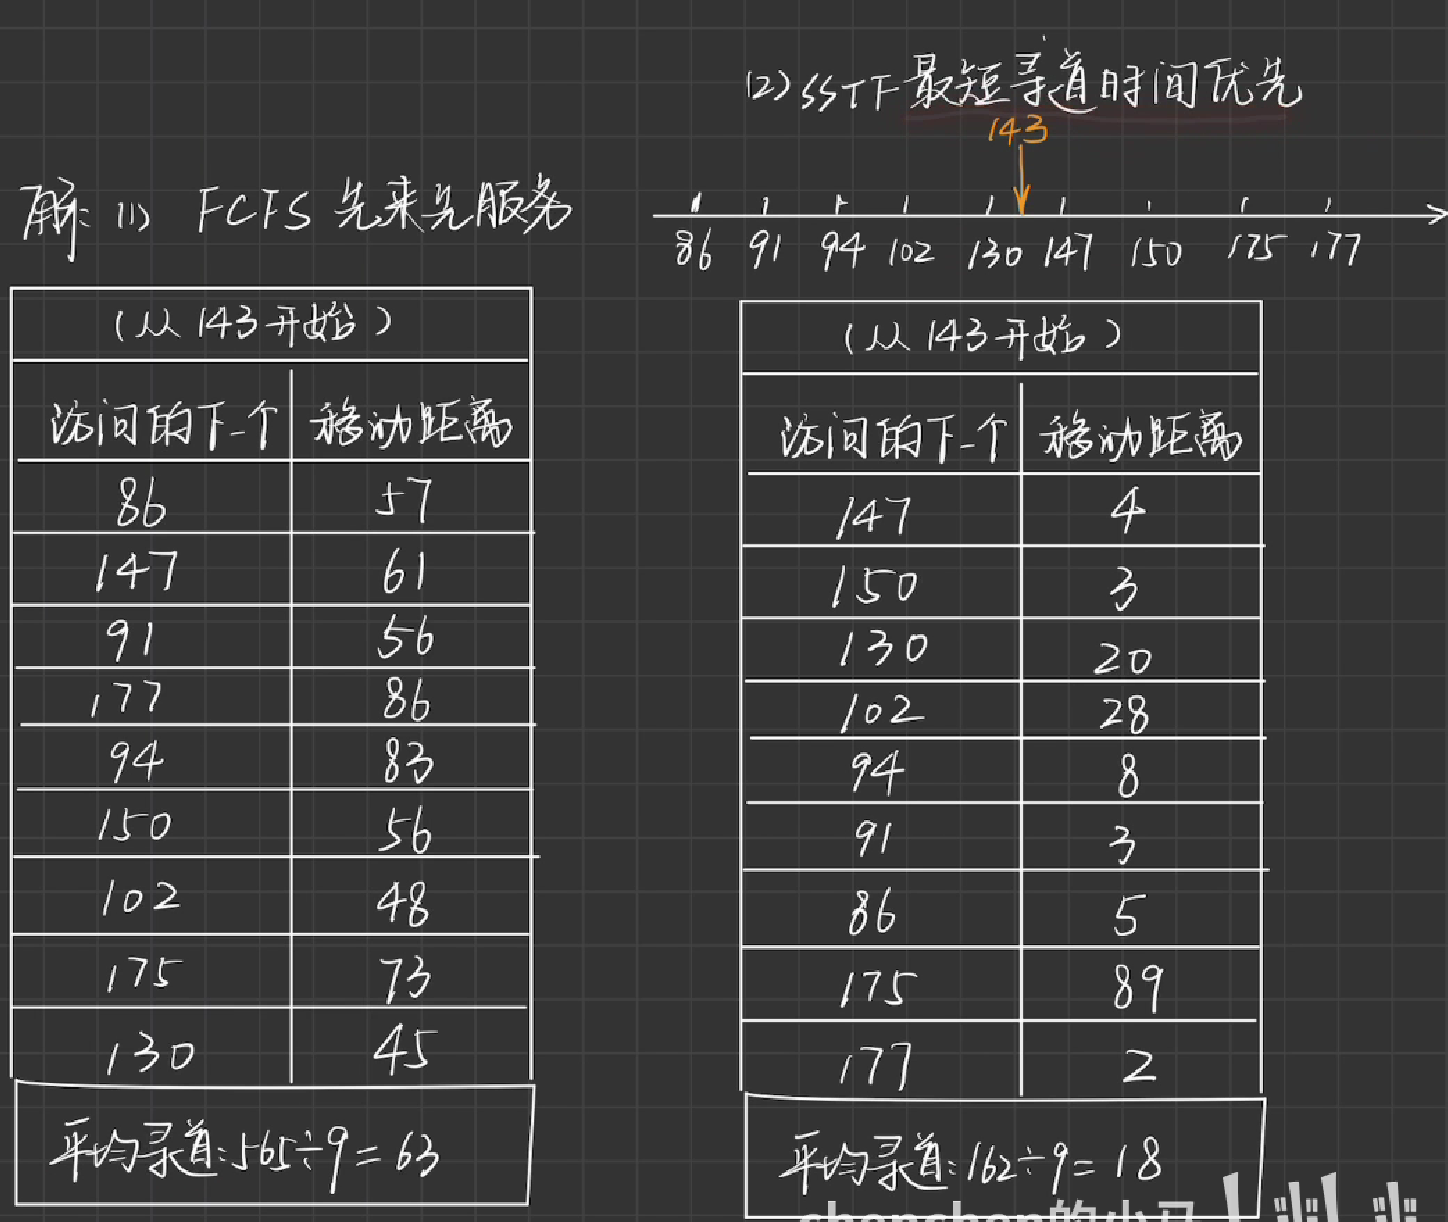 解: (1) FCFS 先来先服务
(从143开始)
访问的下一个 移动距离
86 57
147 61
91 56
177 86
94 83
150 56
102 48
175 73
130 45
平均寻道:565÷9=63
(2) SSTF 最短寻道时间优先
143
86 91 94 102 130 147 150 175 177
(从143开始)
访问的下一个 移动距离
147 4
150 3
130 20
102 28
94 8
91 3
86 5
175 89
177 2
平均寻道:162÷9=18